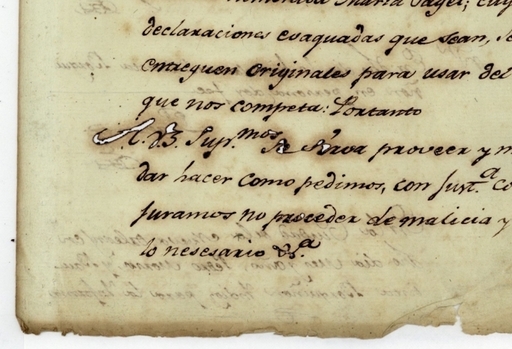 Maria
declaraciones esaquadas que sean, se
entreguen originales para usar del
que nos competa: Portanto
A. V. S. Sup.mos se sirva proveer y m
dar hacer como pedimos, con Just.a co
Juramos no proceder de malicia y
lo nesesario &.a